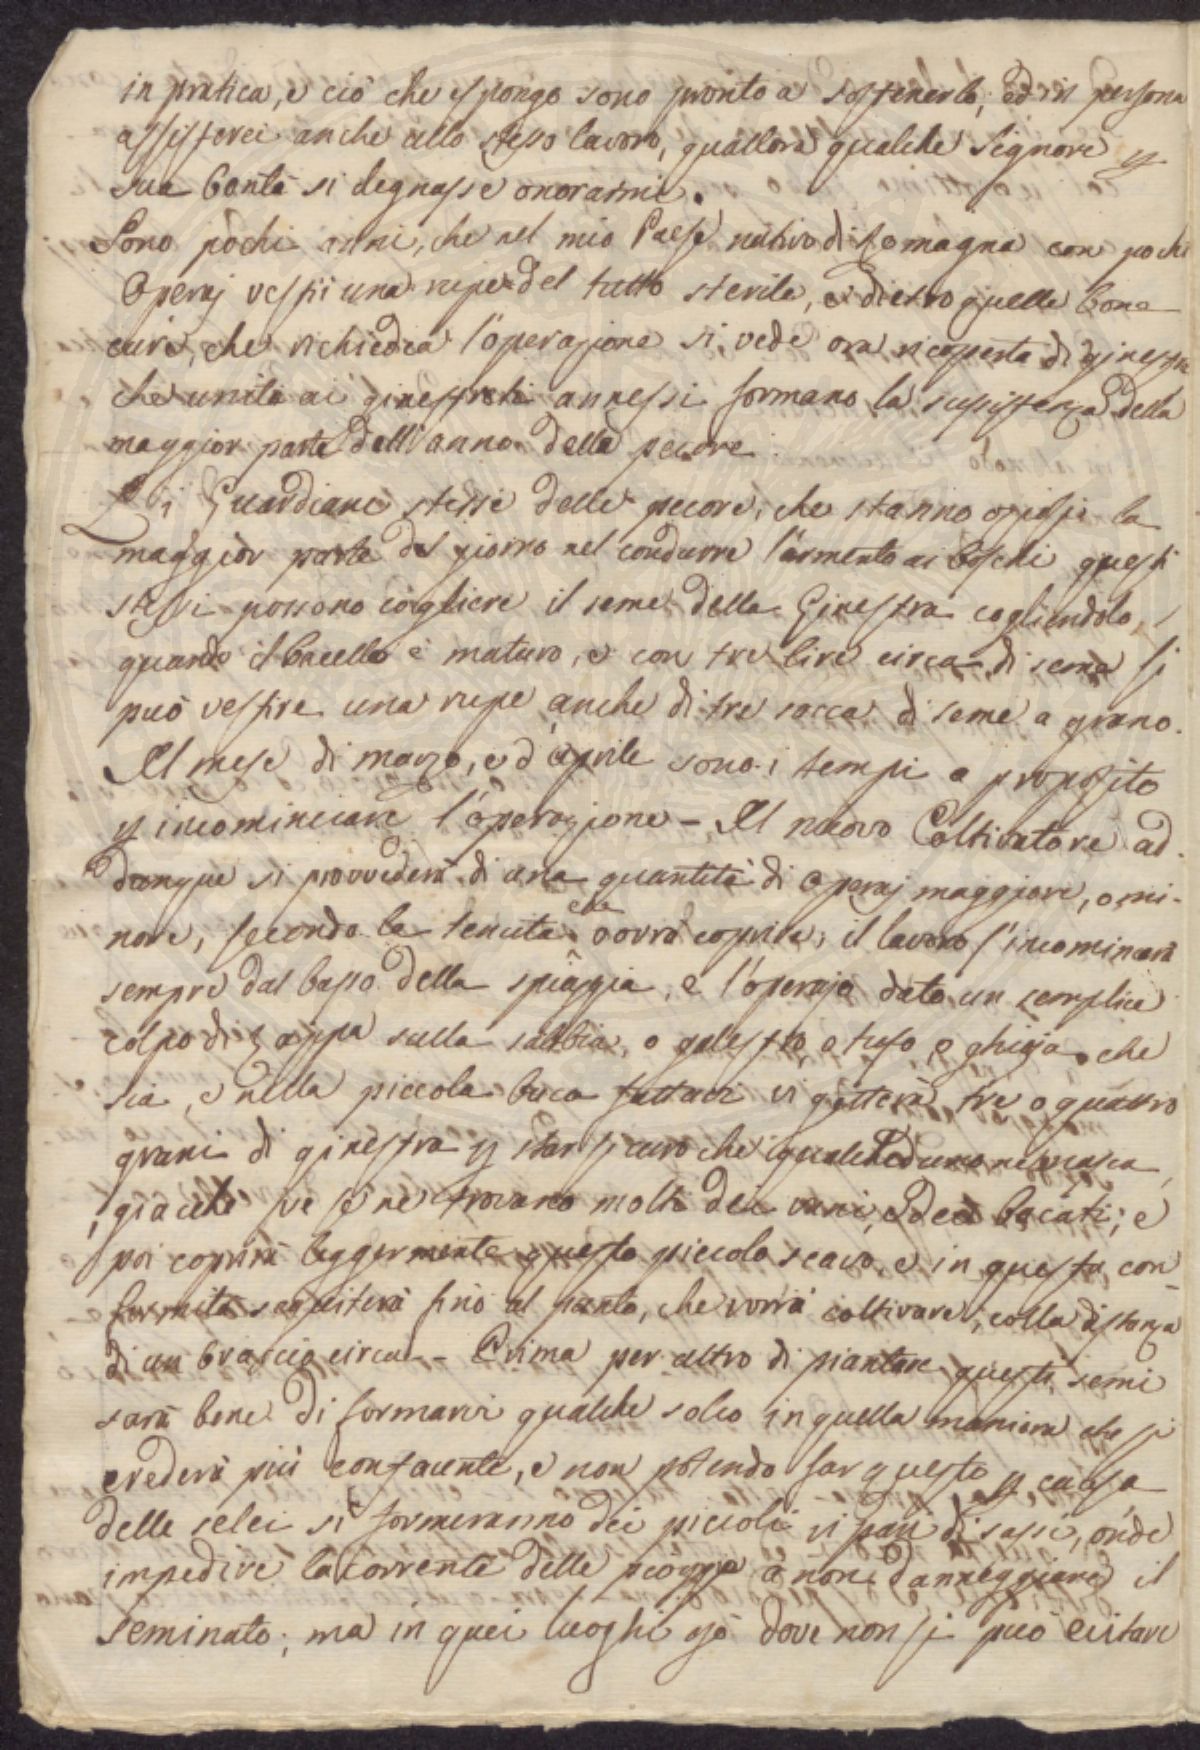 in pratica, e ciò che espongo sono pronto a sostenerlo, ed in persona
assisterei anche allo stesso lavoro, quallora qualche Signore p
sua bontà si degnasse onorarmi.
Sono pochi anni, che nel mio Paese nativo di Romagna con pochi
Operaj vestii una rupe del tutto sterile, e dietro quelle bone
cure, che richiedea l'operazione si vede ora ricoperta di ginestra
che unita ai ginestreti annessi formano la sussistenza della
maggior parte dell'anno delle pecore.
Li Guardiani stessi delle pecore, che stanno oziosi la
maggior parte del giorno nel condurre l'armento ai boschi questi
stessi possono cogliere il seme della Ginestra cogliendolo,
quando il bacello è maturo, e con tre lire circa di seme si
può vestire una rupe anche di tre sacca di seme a grano.
Il mese di marzo, e d'aprile sono i tempi a proposito
p incominciare l'operazione - Il nuovo Coltivatore ad
dunque si provvederà di una quantità di operaj maggiore, o mi-
nore, secondo la tenuta che dovrà coprire, il lavoro s'incomincerà
sempre dal basso della spiaggia, e l'operajo dato un semplice
colpo di zappa sulla sabbia, o galestro, o tufo, o ghiaja che
sia, e nella piccola buca fattaci vi getterà tre o quattro
grani di ginestra p star sicuro che qualcheduno ne nasca,
giacchè ve se ne trovano molti dei vani, e dei bacati; e
poi coprirà leggermente questo piccolo scavo, e in questa con-
formità seguiterà fino al punto, che vorrà coltivare, colla distanza
di un braccio circa - Prima per altro di piantare questi semi
sarà bene di formarci qualche solco in quella maniera che si
crederà più confacente, e non potendo far questo p causa
delle selci si formeranno dei piccoli ripari di sassi, onde
impedire la corrente delle piogge a non danneggiare il
seminato; ma in quei luoghi poi dove non si può evitare